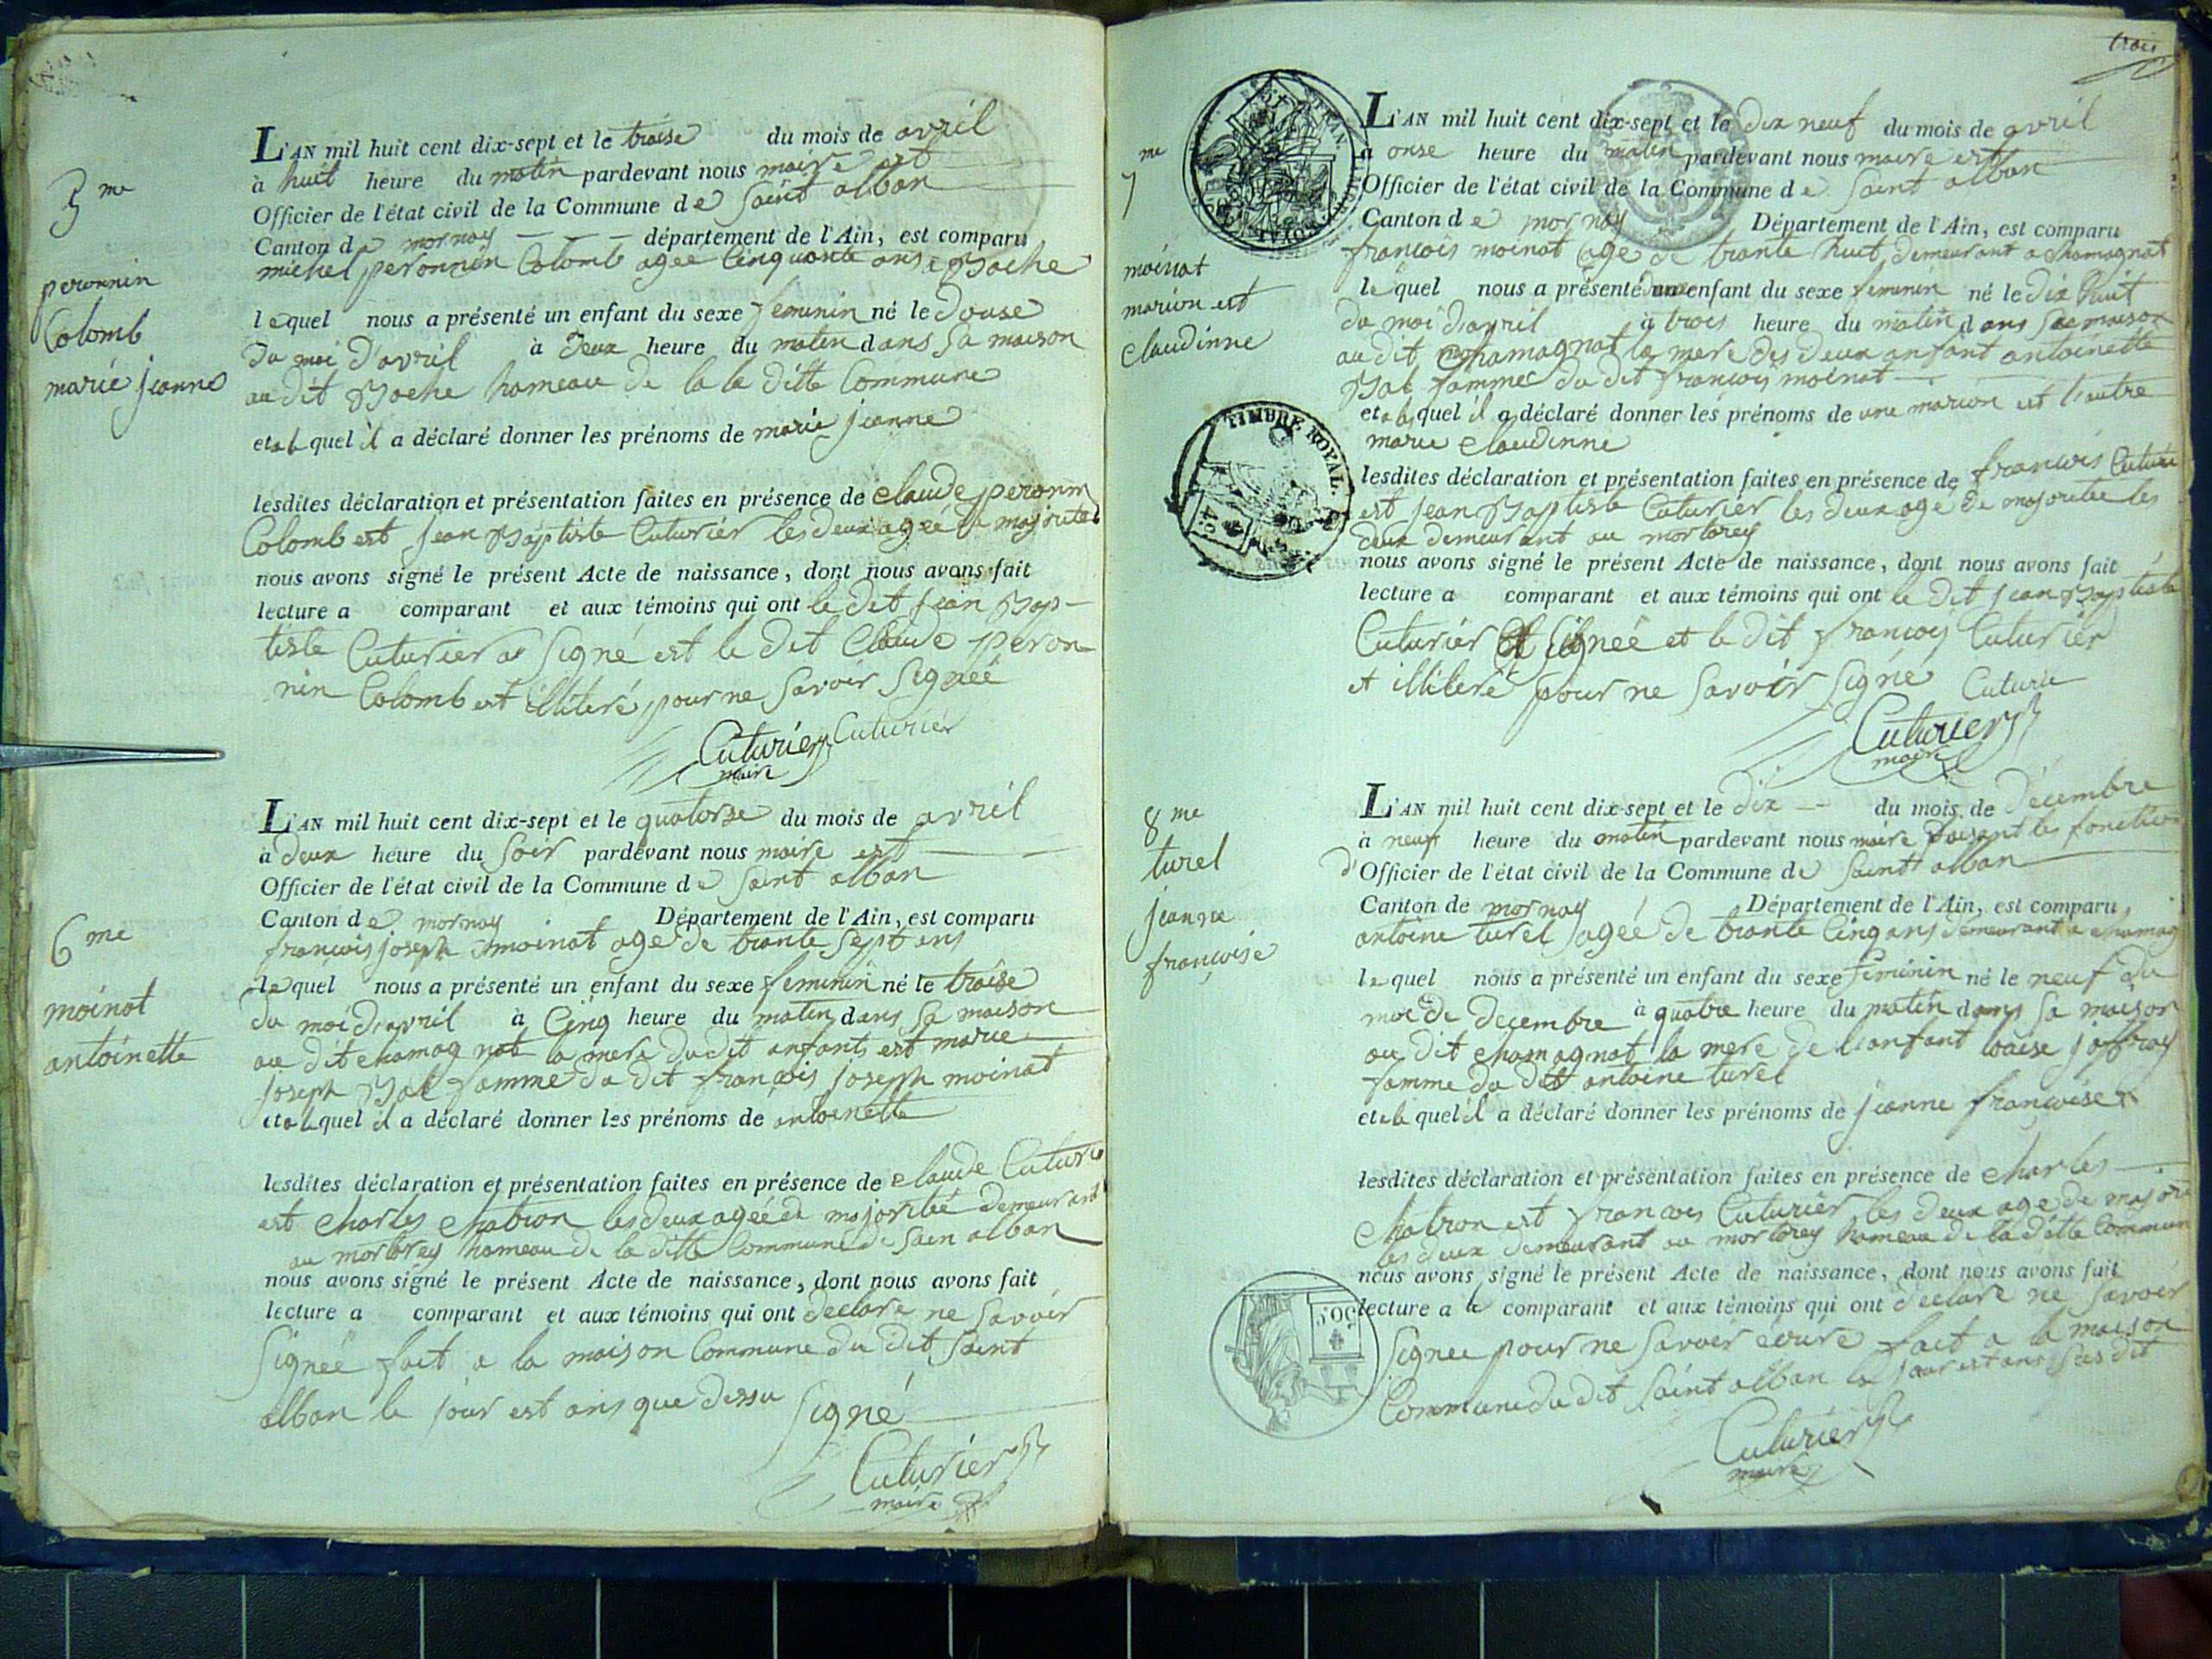 5 me
peronnin
Colomb
marie jeanne
L'AN mil huit cent dix-sept et le traise du mois de avril
à huit heure du matin pardevant nous maire est
Officier de l'état civil de la Commune de Saint alban
Canton de mornay département de l'Ain, est comparu
michel peronnin Colomb agee Cinquante ans a Boche
lequel nous a présenté un enfant du sexe feminin né le Douse
Du moi D'avril à Deux heure du matin dans Sa maison
au dit Boche hameau de la la ditte Commune
et alequel il a déclaré donner les prénoms de marie jeanne
lesdites déclaration et présentation faites en présence de Claude peronin
Colomb est jean Baptiste Cuturier les deux agée de majorité
nous avons signé le présent Acte de naissance, dont nous avons fait
lecture a comparant et aux témoins qui ont le dit jean Bap-
tiste Cuturier a Signé est le dit Claude peron
nin Colomb est illiteré pour ne Savoir Signeé
Cuturier Cuturier
maire
6 me
moinat
antoinette
L'AN mil huit cent dix-sept et le quatorse du mois de avril
à deux heure du Soir pardevant nous maire est
Officier de l'état civil de la Commune de Saint alban
Canton de mornay Département de l'Ain, est comparu
françois joseph moinat age de trante Sept ans
lequel nous a présenté un enfant du sexe feminin né le traise
du moi d'avril à Cinq heure du matin dans Sa maison
au dit chamagnat la mere du dit anfants est marie
joseph Bal famme du dit françois joseph moinat
et alequel il a déclaré donner les prénoms de antoinette
lesdites déclaration et présentation faites en présence de Claude Cuturie
est Charles Chatron les deux agée de majoritée demeurant
au mortorey hameau de la ditte Commune de Sain alban
nous avons signé le présent Acte de naissance, dont nous avons fait
lecture a comparant et aux témoins qui ont declare ne Savoir
Signeé fait a la maison Commune du dit Saint
alban le jour est ans que dessu Signé
Cuturier
maire
trois
7 me
moinat
marion est
Claudinne
L'AN mil huit cent dix-sept et le dix neuf du mois de avril
à onse heure du matin pardevant nous maire est
Officier de l'état civil de la Commune de Saint alban
Canton de mornay Département de l'Ain, est comparu
françois moinat age de trante huit demeurant a chamagnat
lequel nous a présenté enfant du sexe feminin né le dix huit
du moi d'avril à trois heure du matin dans Sa maison
au dit Chamagnat la mere des deux anfant antoinette
Bal famme du dit françois moinat
et alesquel il a déclaré donner les prénoms de une marion est l'autre
marie Claudinne
lesdites déclaration et présentation faites en présence de françois Cuturie
est jean Baptiste Cuturier les deux agé de majoritée les
deux demeurant au mortorey
nous avons signé le présent Acte de naissance, dont nous avons fait
lecture a comparant et aux témoins qui ont le dit jean Baptiste
Cuturier Signeé et le dit françois Cuturier
et illiteré pour ne Savoir Signé Cuturie
Cuturier
maire
TIMBRE ROYAL.
8 me
turel
jeanne
françoise
L'AN mil huit cent dix-sept et le dix du mois de Décembre
à neuf heure du matin pardevant nous maire faisent les fonction
d'Officier de l'état civil de la Commune de Saint alban
Canton de mornay Département de l'Ain, est comparu
antoine turel ageé de trante Cinq ans demeurant a chamag
lequel nous a présenté un enfant du sexe feminin né le neuf du
moi de decembre à quatre heure du matin dans Sa maison
au dit chamagnat la mere de l'anfant loaise joffray
famme du dit antoine turel
et ale quel il a déclaré donner les prénoms de jeanne françoise
lesdites déclaration et présentation faites en présence de Charles
Chatron est francois Cuturier les deux age de majori
les deux demeurant au mortorey hameau de la ditte Commun
nous avons signé le présent Acte de naissance, dont nous avons fait
lecture a le comparant et aux témoins qui ont declare ne Savoir
Signee pour ne Savoir ecrire fait a la maison
Commune du dit Saint alban le jour est ans Susdit
Cuturier
maire